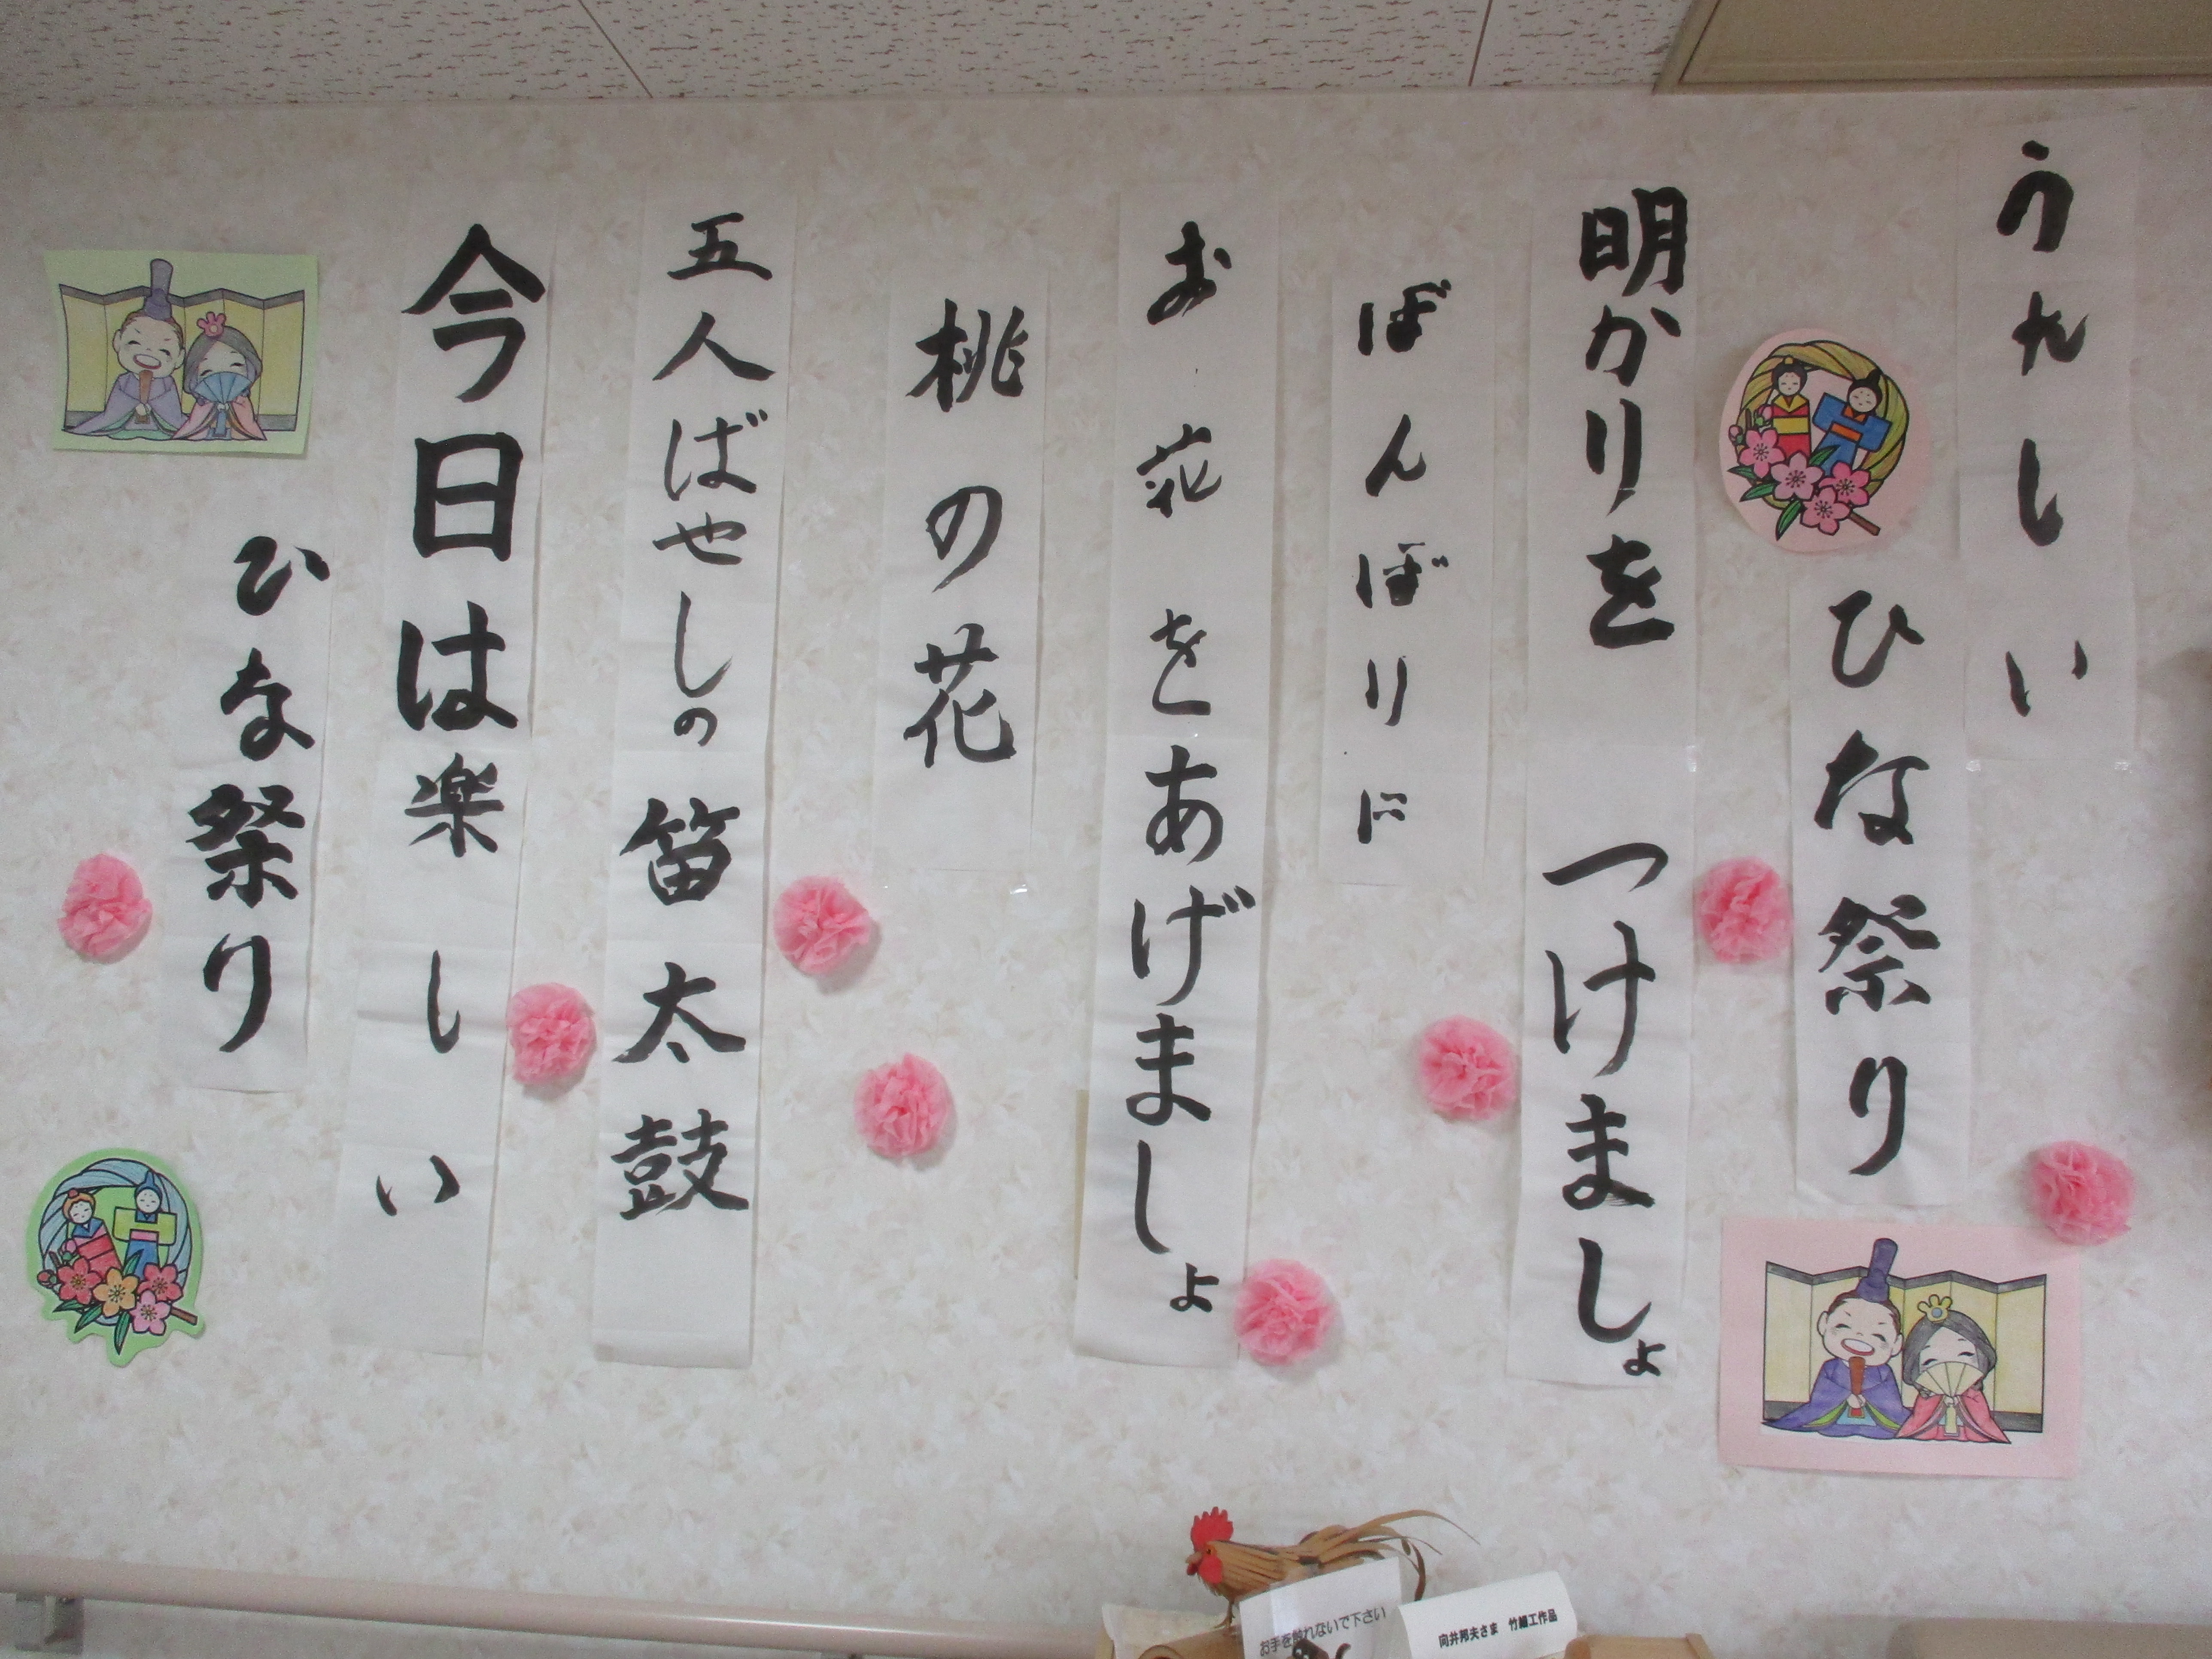 うれしい
ひな祭り
明かりを つけましょ
ぼんぼりに
お花をあげましょ
桃の花
五人ばやしの笛太鼓
今日は楽しい
ひな祭り
お手を触れないで下さい
向井邦夫さま 竹細工作品